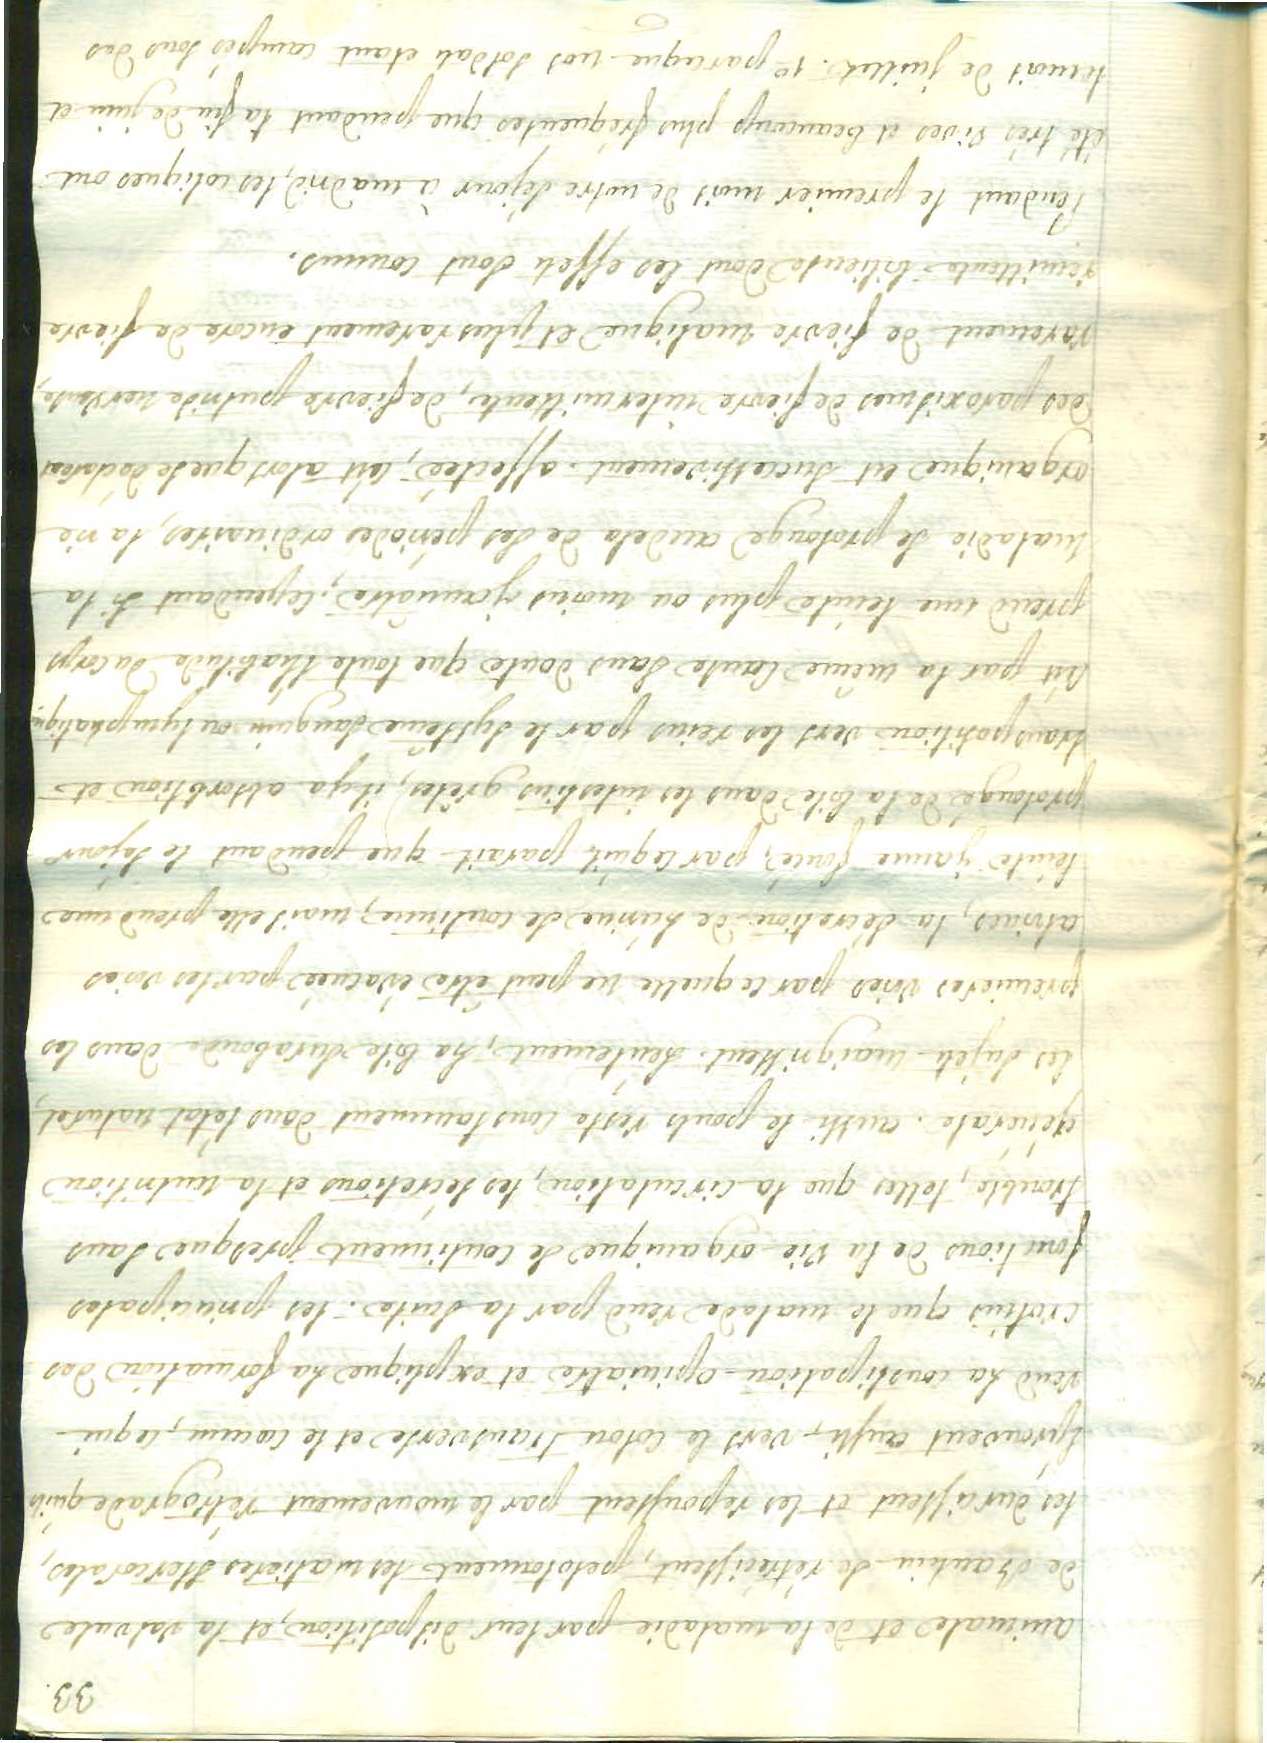 33.
animale et de la maladie par leur disposition, et la valvule
de Bauhin se rétrécissent, pelotonnent les matières stercorales,
les durcissent et les repoussent par le mouvement rétrograde quils
éprouvent aussi, vers le colon transverse et le cœcum, ce qui
rend la constipation opiniatre et explique la formation des
crotins que le malade rend par la suite. les principales
fonctions de la vie organique se continuent presque sans
trouble, telles que la circulation, les sécretions et la nutrition
générale. aussi le pouls reste constamment dans l'état naturel,
les sujets maigrissent lentement, la bile surabonde dans les
premieres voies parcequelle ne peut etre évacuée par les voies
alvines, la sécretion de l'urine se continue, mais elle prend une
teinte jaune foncée, parcequ'il parait que pendant le séjour
prolongé de la bile dans les intestins grêles, il y a absorbtion et
transposition vers les reins par le systême sanguin ou lymphatique
c'est par la même cause sans doute que toute l'habitude du corps
prend une teinte plus ou moins jaunâtre, cependant si la
maladie se prolonge audela de ses périodes ordinaires, la vie
organique est successivement affectée, c'est alors que se déclarent
des paroxismes de fievre intermittente, de fievre putride nerveuse,
rarement de fievre maligne et plus rarement encore de fievre
rémittente bilieuse dont les effets sont connus.
Pendant le premier mois de notre séjour à madrid, les coliques ont
été très vives et beaucoup plus fréquentes que pendant la fin de juin et
le mois de juillet. 1° parceque nos soldats etant campés sous des